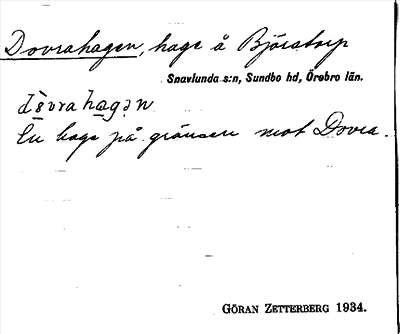 Dovrahagen, hage å Björstorp
Snavlunda s:n, Sundbo hd, Örebro län.
hagən
En hage på gränsen mot Dovra.
GÖRAN ZETTERBERG 1934.